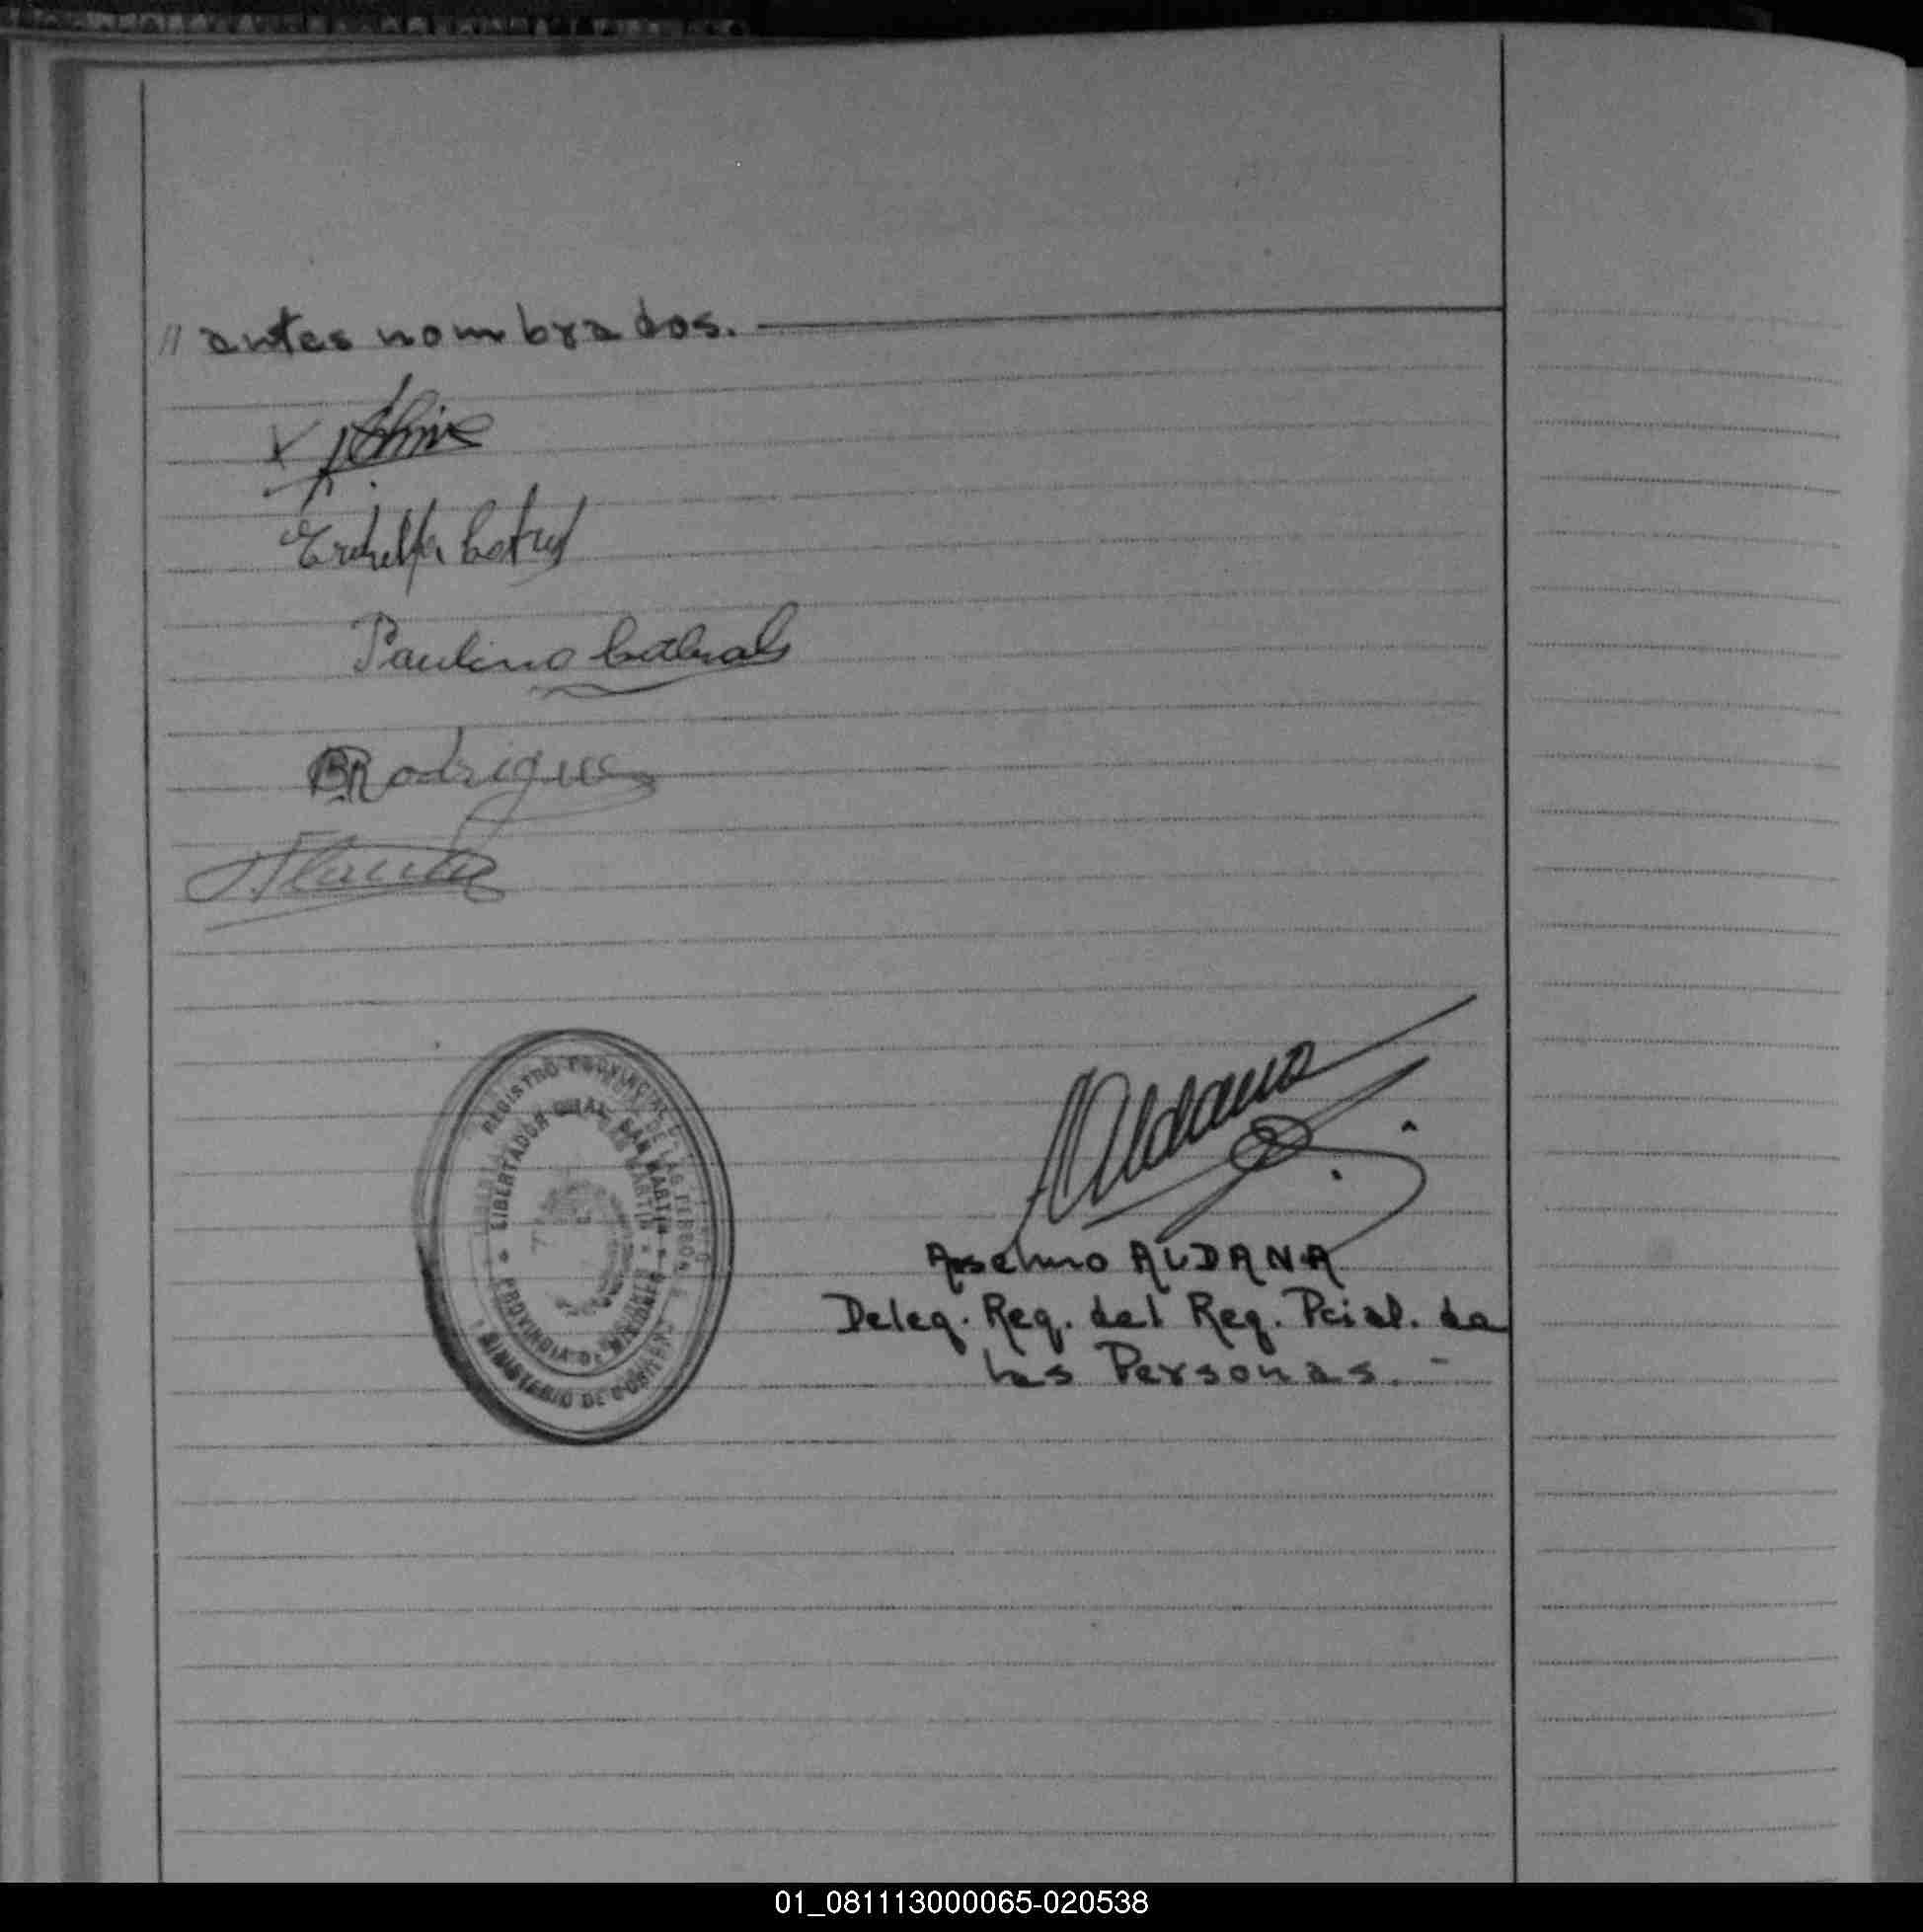 // antes nombrados.
Paulino Cabral
BRodrigues
REGISTRO PROVINCIAL DE LAS PERSONAS
LIBERTADOR GRAL. SAN MARTIN
PROVINCIA DE MISIONES
MINISTERIO DE GOBIERNO
Aldana
Anselmo ALDANA
Deleg. Reg. del Reg. Pcial. de
las Personas.-
01_081113000065-020538